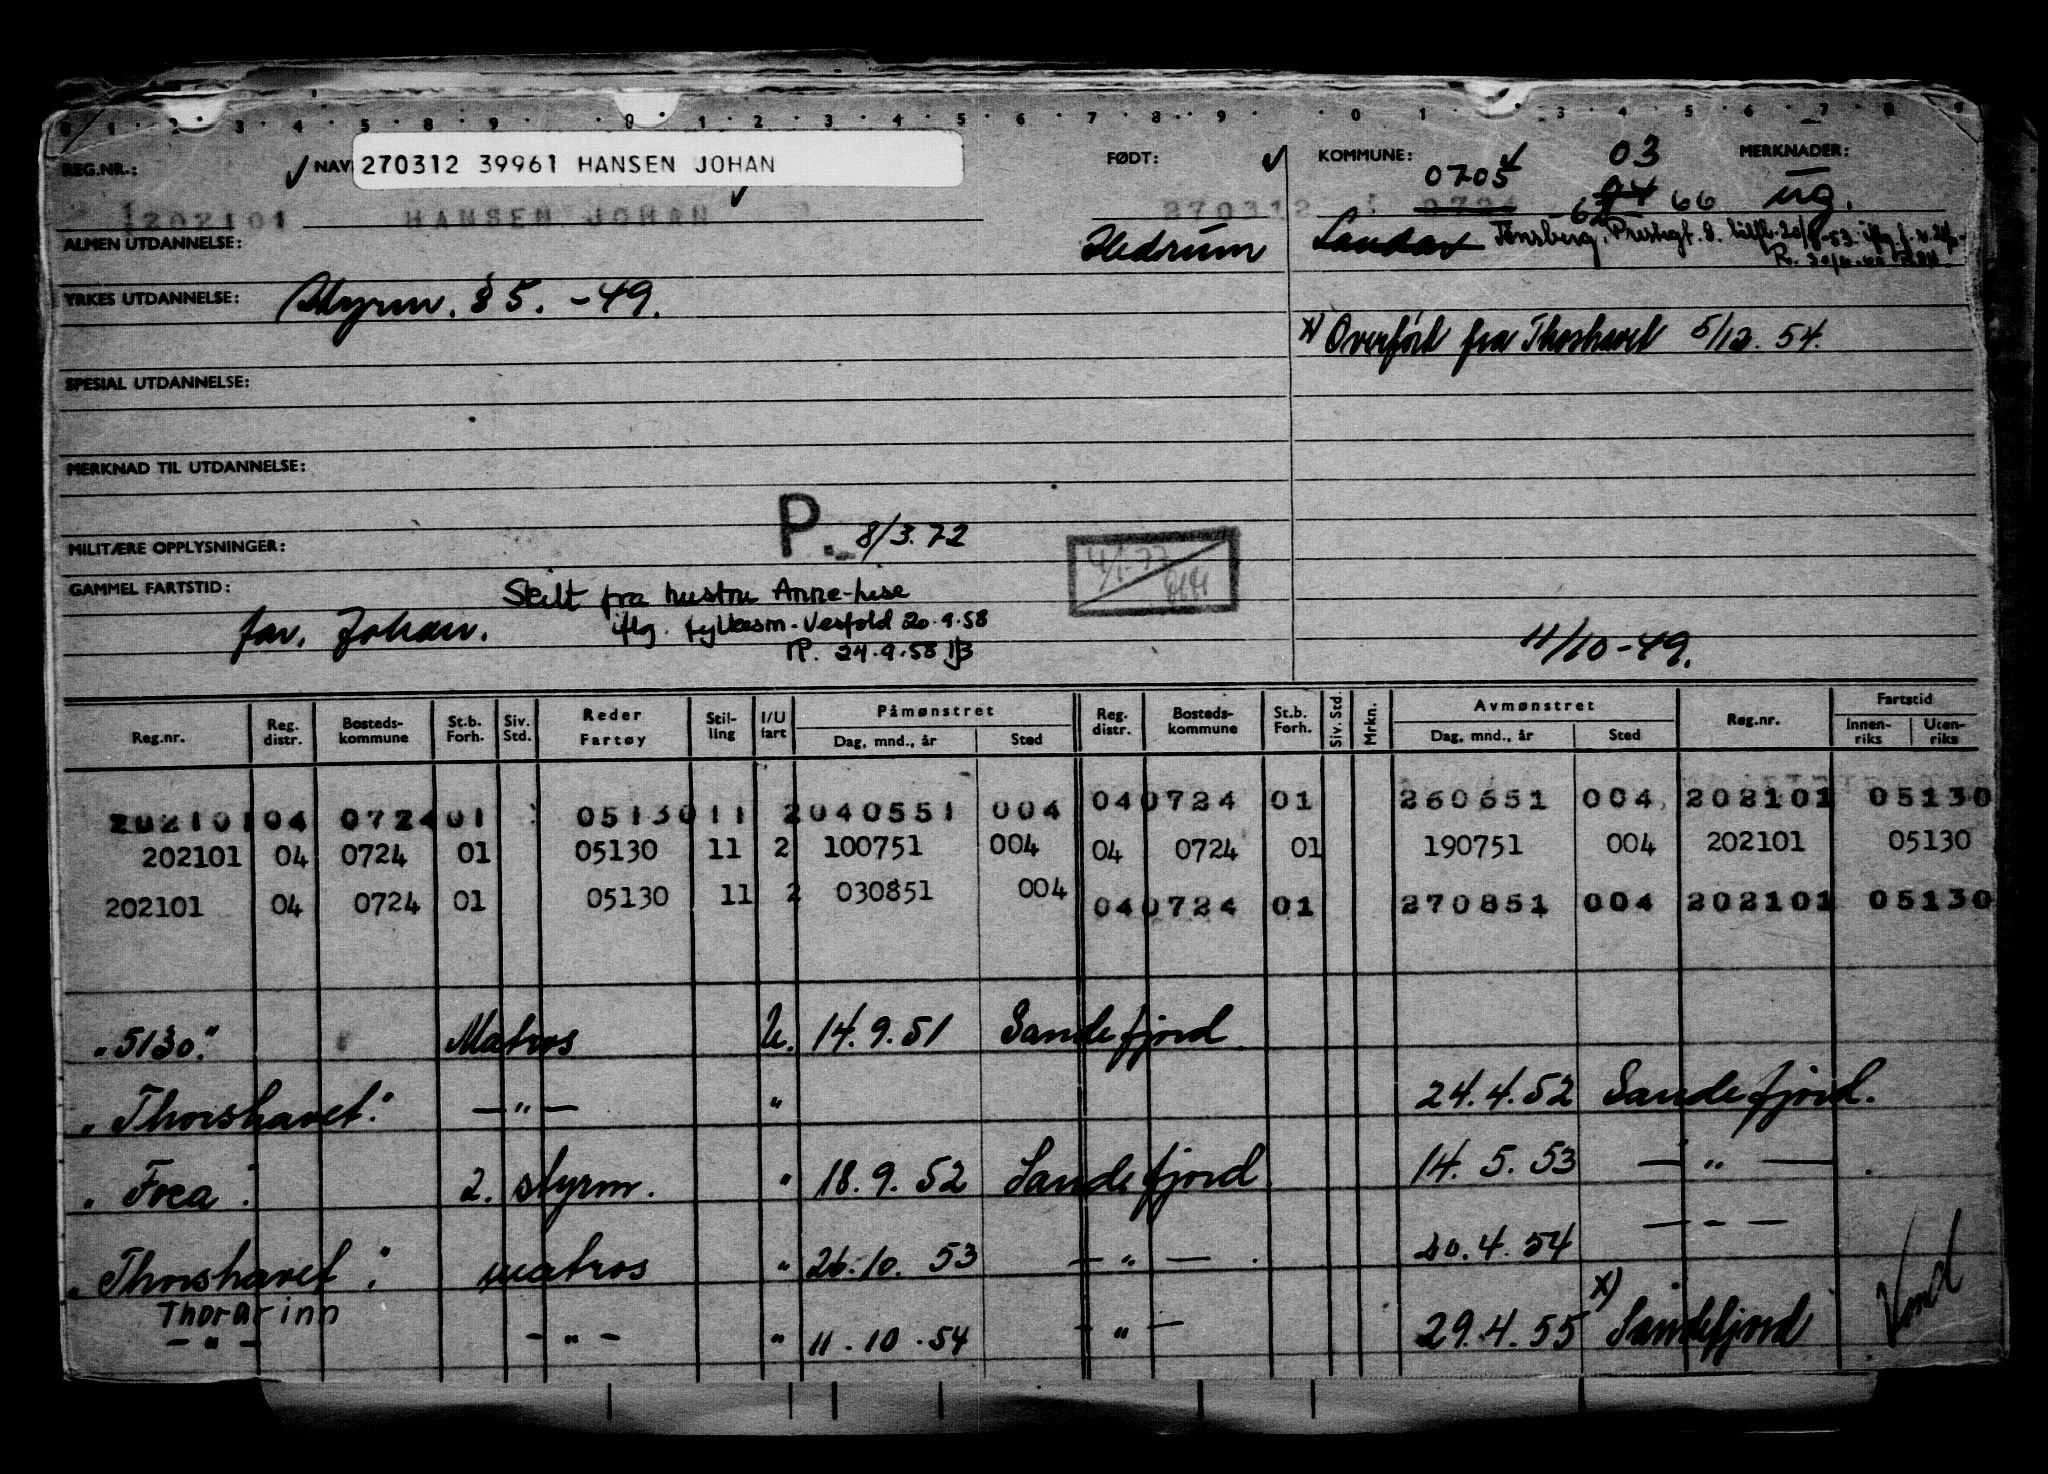 0 1 2 3 4 5 6 9 0 1 2 3 4 5 6 7 8 9 0 1 3 4 5 6 7 8 9
REG.NR.: NAV 270312 39961 HANSEN JOHAN FØDT: KOMMUNE: 03 MERKNADER:
0705 66 ug.
202101 HANSEN JOHAN 270312 0724
ALMEN UTDANNELSE: Hedrum Sandar Tønsberg, Prestegt. 8.
YRKES UTDANNELSE: Styrm. § 5. -49.
x) Overført fra Thorshavet 5/12. 54.
SPESIAL UTDANNELSE:
MERKNAD TIL UTDANNELSE:
P. 8/3.72
MILITÆRE OPPLYSNINGER:
GAMMEL FARTSTID: Skilt fra hustru Anne-Lise
far, Johan. iflg. fylkesm. Vestfold 20.9.58
R. 24.9.58
11/10-49.
Reg.nr. Reg. distr. Bosteds-kommune St.b. Forh. Siv. Std. Reder Fartøy Stil-ling I/U fart Påmønstret Dag, mnd., år Sted Reg. distr. Bosteds-kommune St.b. Forh. Siv. Std. Mrkn. Avmønstret Dag, mnd., år Sted Reg.nr. Fartstid Innen-riks Uten-riks
202101 04 0724 01 05130 11 2 040551 004 04 0724 01 260651 004 202101 05130
202101 04 0724 01 05130 11 2 100751 004 04 0724 01 190751 004 202101 05130
202101 04 0724 01 05130 11 2 030851 004 04 0724 01 270851 004 202101 05130
"5130." Matros U. 14.9.51 Sandefjord
"Thorshavet". — " — " 24.4.52 Sandefjord.
"Foca". 2. styrm. " 18.9.52 Sandefjord 14.5.53 — " —
"Thorshavet". matros " 26.10.53 — " — 20.4.54 — " —
Thorarinn
— " — — " — " 11.10.54 — " — 29.4.55 x) Sandefjord